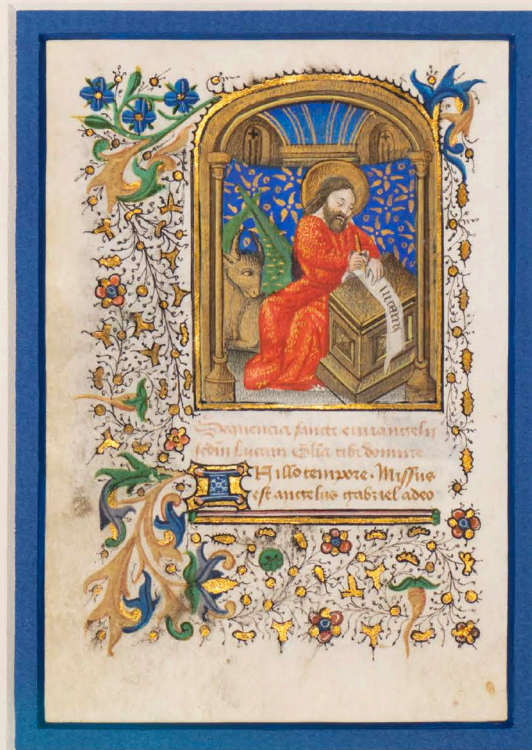 Sequencia sancti euuangelii
scdm Lucam Glia tibi domine
IN illo tempore. Missus
est angelus gabriel a deo